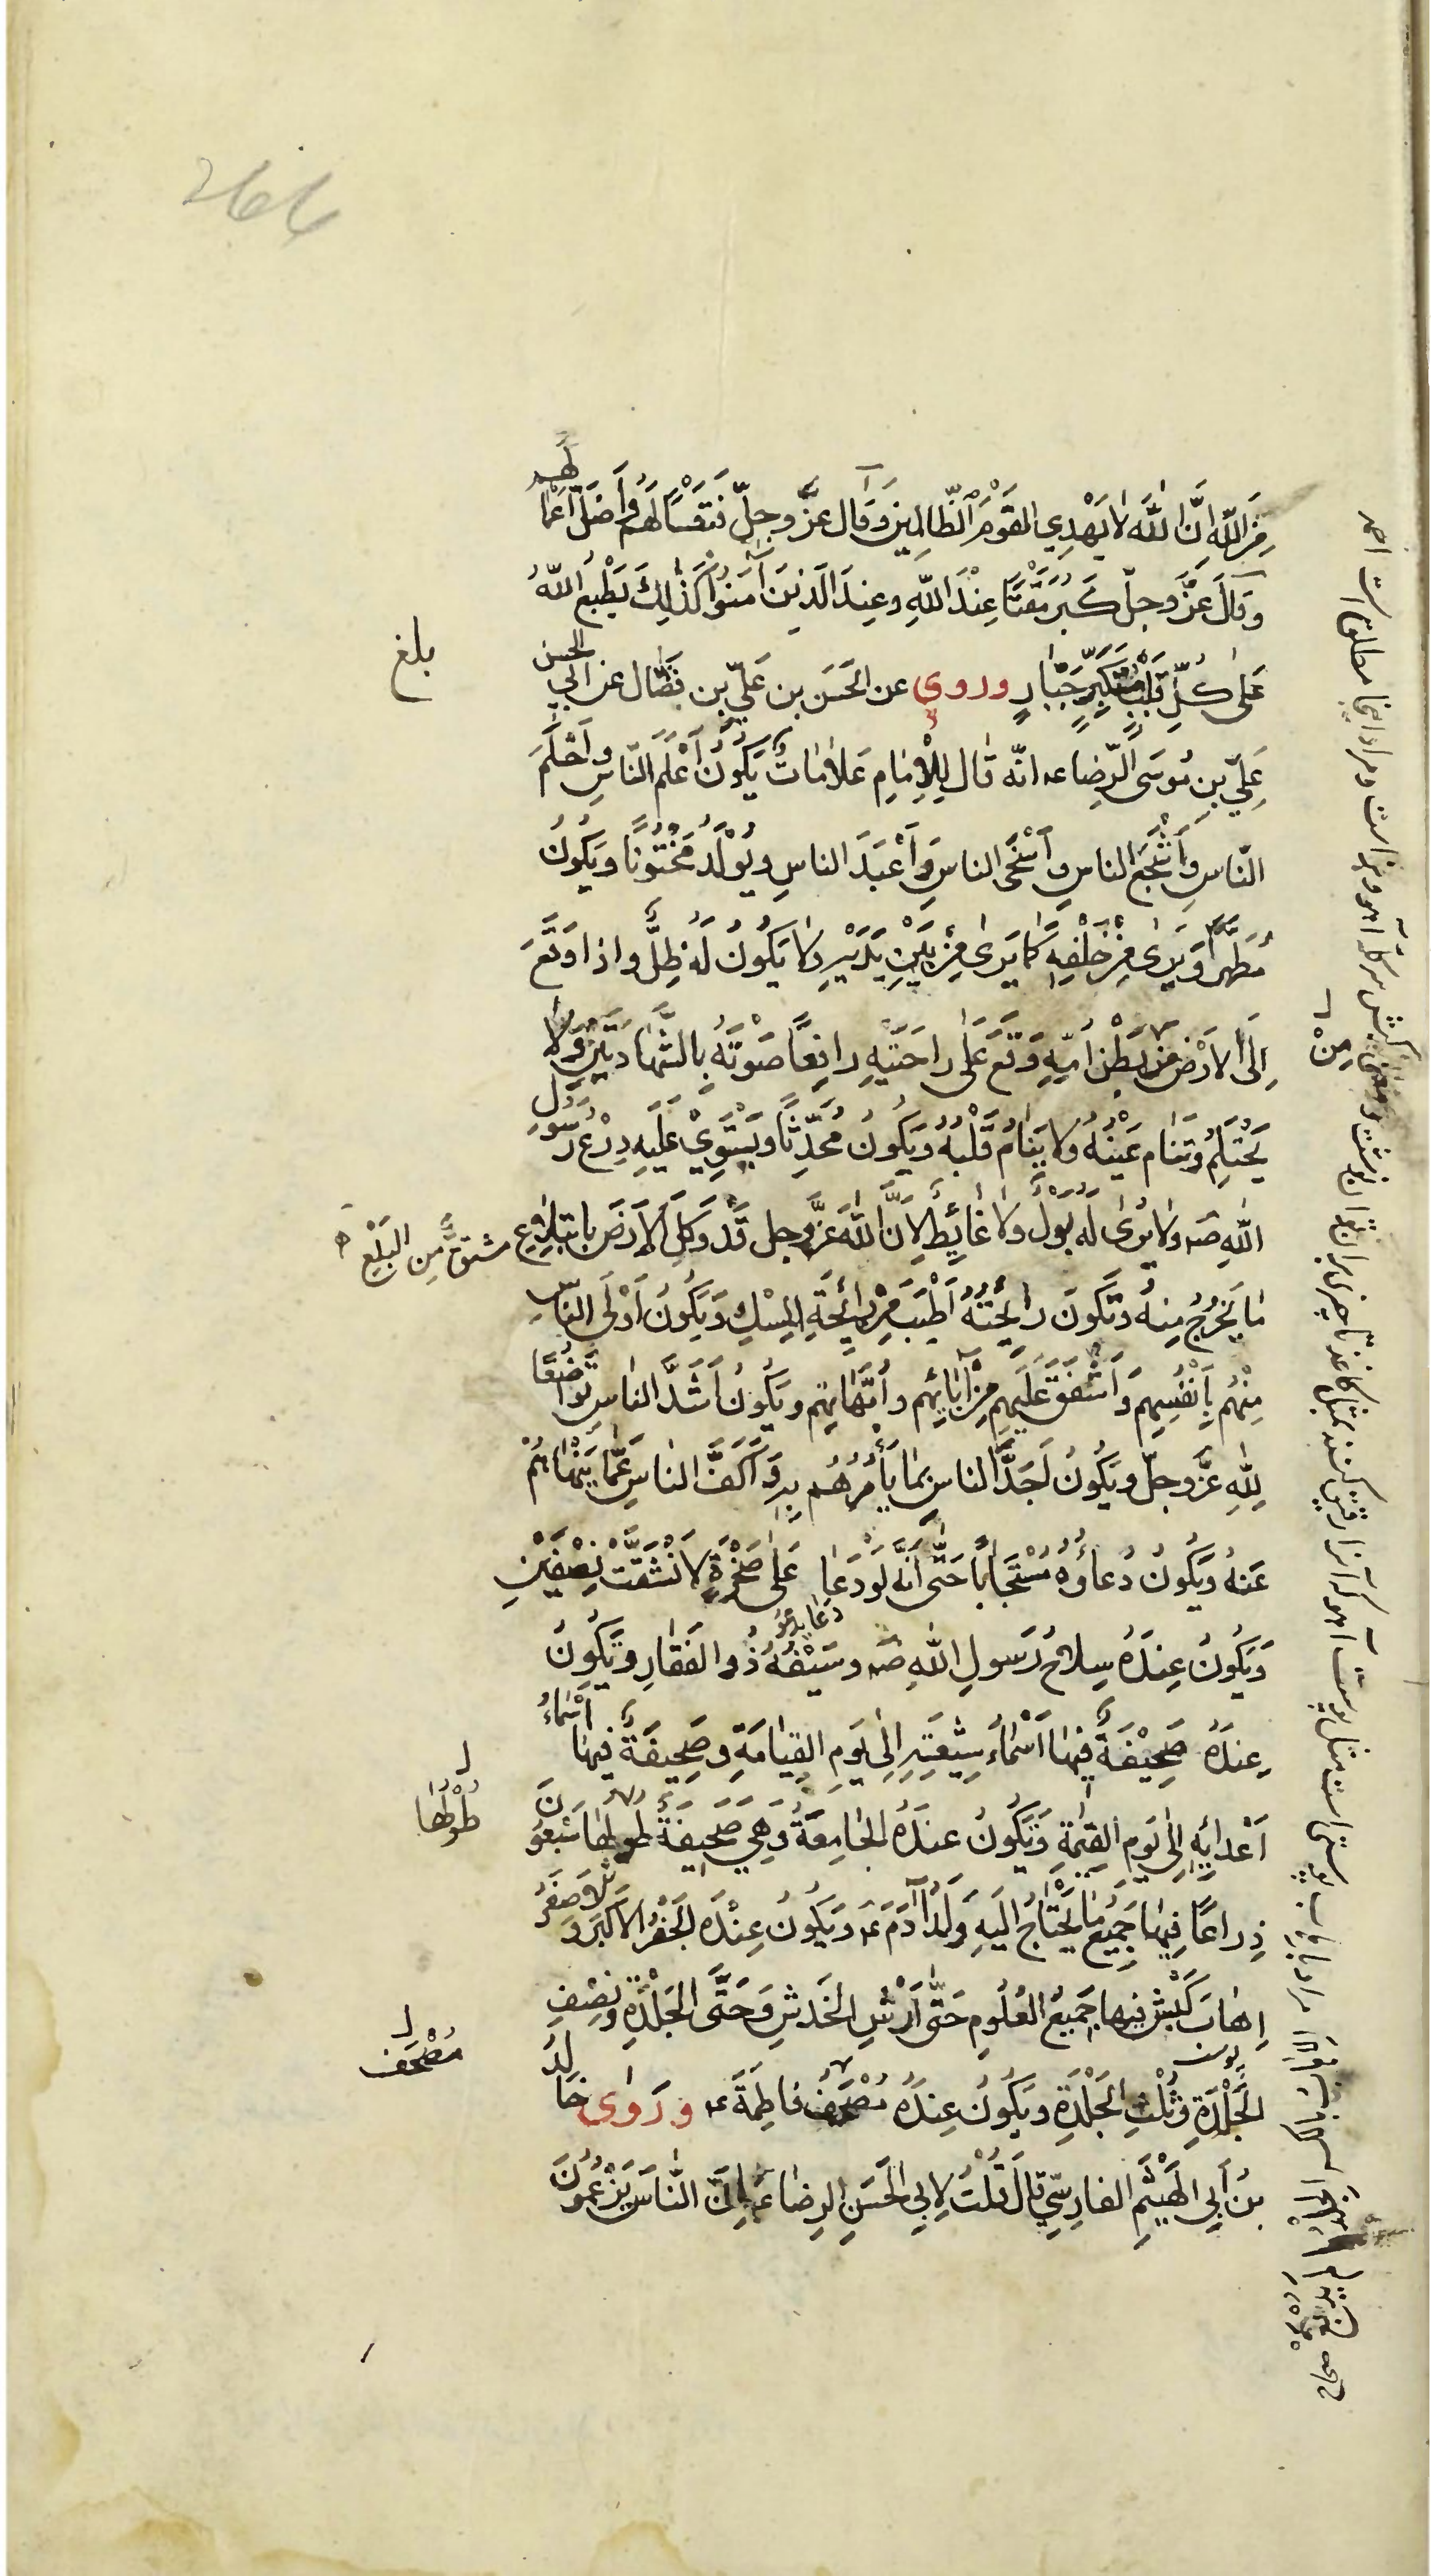 مِنَ اللّٰهِ اِنَّ اللّٰهَ لَا يَهْدِي الْقَوْمَ الظَّالِمِينَ وَقَالَ عَزَّ وجلّ فَتَعْسًا لَهُمْ وَاَضَلَّ اَعْمَالَهُم
وقَالَ عَزَّ وجلّ كَبُرَ مَقْتًا عِنْدَ اللّٰهِ وعِندَ الَّذينَ آمَنُوا كَذٰلِكَ يَطْبَعُ اللّٰهُ
عَلٰى كُلِّ قَلْبِ مُتَكَبِّرٍ جَبَّارٍ وروى عن الحَسَن بن عَليّ بن فَضّال عن ابي الحسن
عَلِيّ بنِ مُوسَى الرِّضا عه انّه قال لِلْاِمٰامِ عَلاٰمٰاتٌ يَكُونُ اَعْلَمَ النّاسِ واَحْلَمَ
النّاسِ وَاَشْجَعَ الناسِ واَسْخَى الناسِ وَاَعْبَدَ الناسِ ويُولَدُ مَخْتُونًا ويَكُونُ
مُطَهَّرًا وَيَرٰى مِنْ خَلْفِهِ كَمٰا يَرٰى مِنْ بَيْنِ يَدَيْهِ ولا يَكُونُ لَهُ ظِلٌّ واذا وَقَعَ
اِلَى الاَرْضِ مِنْ بَطْنِ اُمِّهِ وَقَعَ عَلٰى راحَتَيْهِ رافِعًا صَوْتَهُ بِالشَّهٰادَتَيْنِ وَلٰا
يَحْتَلِمُ وتَنٰام عَيْنُهُ ولا يَنٰامُ قَلْبُهُ ويَكُونُ مُحَدَّثًا ويَسْتَوِيْ عَلَيهِ دِرْعُ رَسُولِ
اللهِ صه ولا يُرٰى لَه بَولٌ ولا غٰائِطٌ لِاَنَّ اللّٰهَ عَزَّوجل قَد وَكَّلَ الاَرضَ بابتِلاٰعِ
مشتقٌّ مِن البَلْعِ
مٰا يَخرُجُ مِنهُ وتَكُونَ رايِحَتُهُ اَطْيَبَ مِنْ رٰائِحَةِ المِسْكِ وَيَكُونَ اَوْلَى الناسِ
مِنْهُم بِاَنْفُسِهِمْ وَاَشْفَقَ عَلَيهِم مِنْ آبٰائِهِم واُمَّهٰاتِهِم ويَكُونُ اَشَدَّ الناسِ تَوَاضُعًا
لِلّٰهِ عَزَّوجلّ ويَكُونُ آخَذَ الناسِ بِمٰا يَأمُرُهُم بِهِ وَاَكَفَّ الناسِ عَمّٰا يَنْهٰاهُمْ
عَنهُ ويَكُونُ دُعاؤُهُ مُسْتَجَابًا حَتّٰى اَنَّه لَوْ دَعَا عَلٰى صَخْرَةٍ لاٰنْشَقَّتْ نِصْفَيْنِ
دعا يدعو
وَيَكُونُ عِندَهُ سِلاٰحُ رَسُولِ اللهِ صه وسَيْفُهُ ذُو الفَقٰارِ وتَكُونُ
عِندَهُ صَحِيْفَةٌ فِيهٰا اَسْمٰاءُ شِيْعَتِهِ اِلٰى يَومِ القِيٰامَةِ وصَحِيفَةٌ فيهٰا اَسْمٰاءُ
اَعْدائِهِ اِلى يَومِ القِيٰمَةِ وَتَكُونُ عندَهُ الجٰامِعَةُ وَهِيَ صَحيفَةٌ طولُها سَبْعُونَ
طُولُهٰا
ذِراعًا فِيهٰا جَمِيعُ مٰا يَحْتٰاجُ اليَهِ وُلْدُ آدَمَ عه وَيَكُونُ عِنْدَه الجَفْرُ الاَكبَرُ وَالاَصغَرُ
اِهٰابُ كَبْشٍ فيها جَمِيعُ العُلُومِ حَتّٰى اَرْشِ الخَدشِ وَحَتَّى الجَلْدَةِ ونِصْفِ
الجَلْدَةِ وثُلْثِ الجَلْدَةِ ويَكُونُ عِندَهُ مُصْحَفُ فٰاطِمَةَ عه ورَوٰى خٰالِدُ
مُصْحَف
بنُ اَبِي الهَيْثَمِ الفارِسّيِ قالَ قُلْتُ لِابِي الحَسَنِ الرِضٰا عه اِنَّ النّٰاسَ يَزْعُمُونَ
بلغ